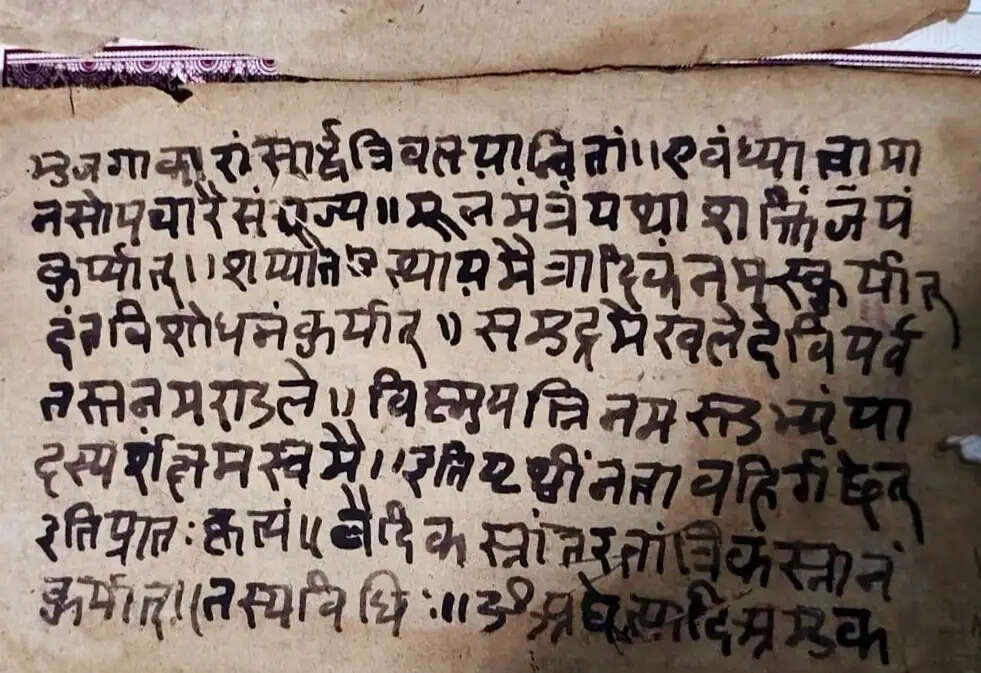 भुजगाकारां सार्द्धत्रिवलयान्वितां॥ एवंध्यात्वामा
नसोपचारैः संपूज्य॥ मूलमंत्रं यथाशक्तिं जपं
कुर्य्यात्॥ शय्यातउत्थाय मैत्रादिकं नमस्कुर्यात्
दंतविशोधनं कुर्यात्॥ समुद्रमेखले देवि पर्व
तस्तनमण्डले॥ विष्णुपत्नि नमस्तुभ्यं पा
दस्पर्शं क्षमस्व मे॥ इति पृथ्वीं नत्वा वहिर्गछेत्
इति प्रातःकृत्यं॥ वैदिकस्नांतरतांत्रिकंस्नानं
कुर्यात्॥ तस्य विधिः॥ ॐ अद्येत्यादि अमुक